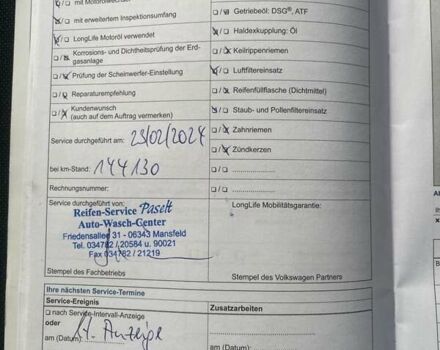 mit Motorölwechsel
mit erweitertem Inspektionsumfang
LongLife Motoröl verwendet
Korrosions- und Dichtheitsprüfung der Erd-
gasanlage
Prüfung der Scheinwerfer-Einstellung
Reparaturempfehlung
Kundenwunsch
(auch auf dem Auftrag vermerken)
Service durchgeführt am: 23/02/2024
bei km-Stand: 144130
Rechnungsnummer:
Service durchgeführt von:
Reifen-Service Paselt
Auto-Wasch-Center
Friedensallee 31 - 06343 Mansfeld
Tel. 034782 / 20584 u. 90021
Fax 034782 / 21219
Stempel des Fachbetriebs
Getriebeöl: DSG®, ATF
Haldexkupplung: Öl
Keilrippenriemen
Luftfiltereinsatz
Reifenfüllflasche (Dichtmittel)
Staub- und Pollenfiltereinsatz
Zahnriemen
Zündkerzen
LongLife Mobilitätsgarantie:
Stempel des Volkswagen Partners
Ihre nächsten Service-Termine
Service-Ereignis
nach Service-Intervall-Anzeige
oder
am (Datum): lt. Anzeige
Zusatzarbeiten
am (Datum):